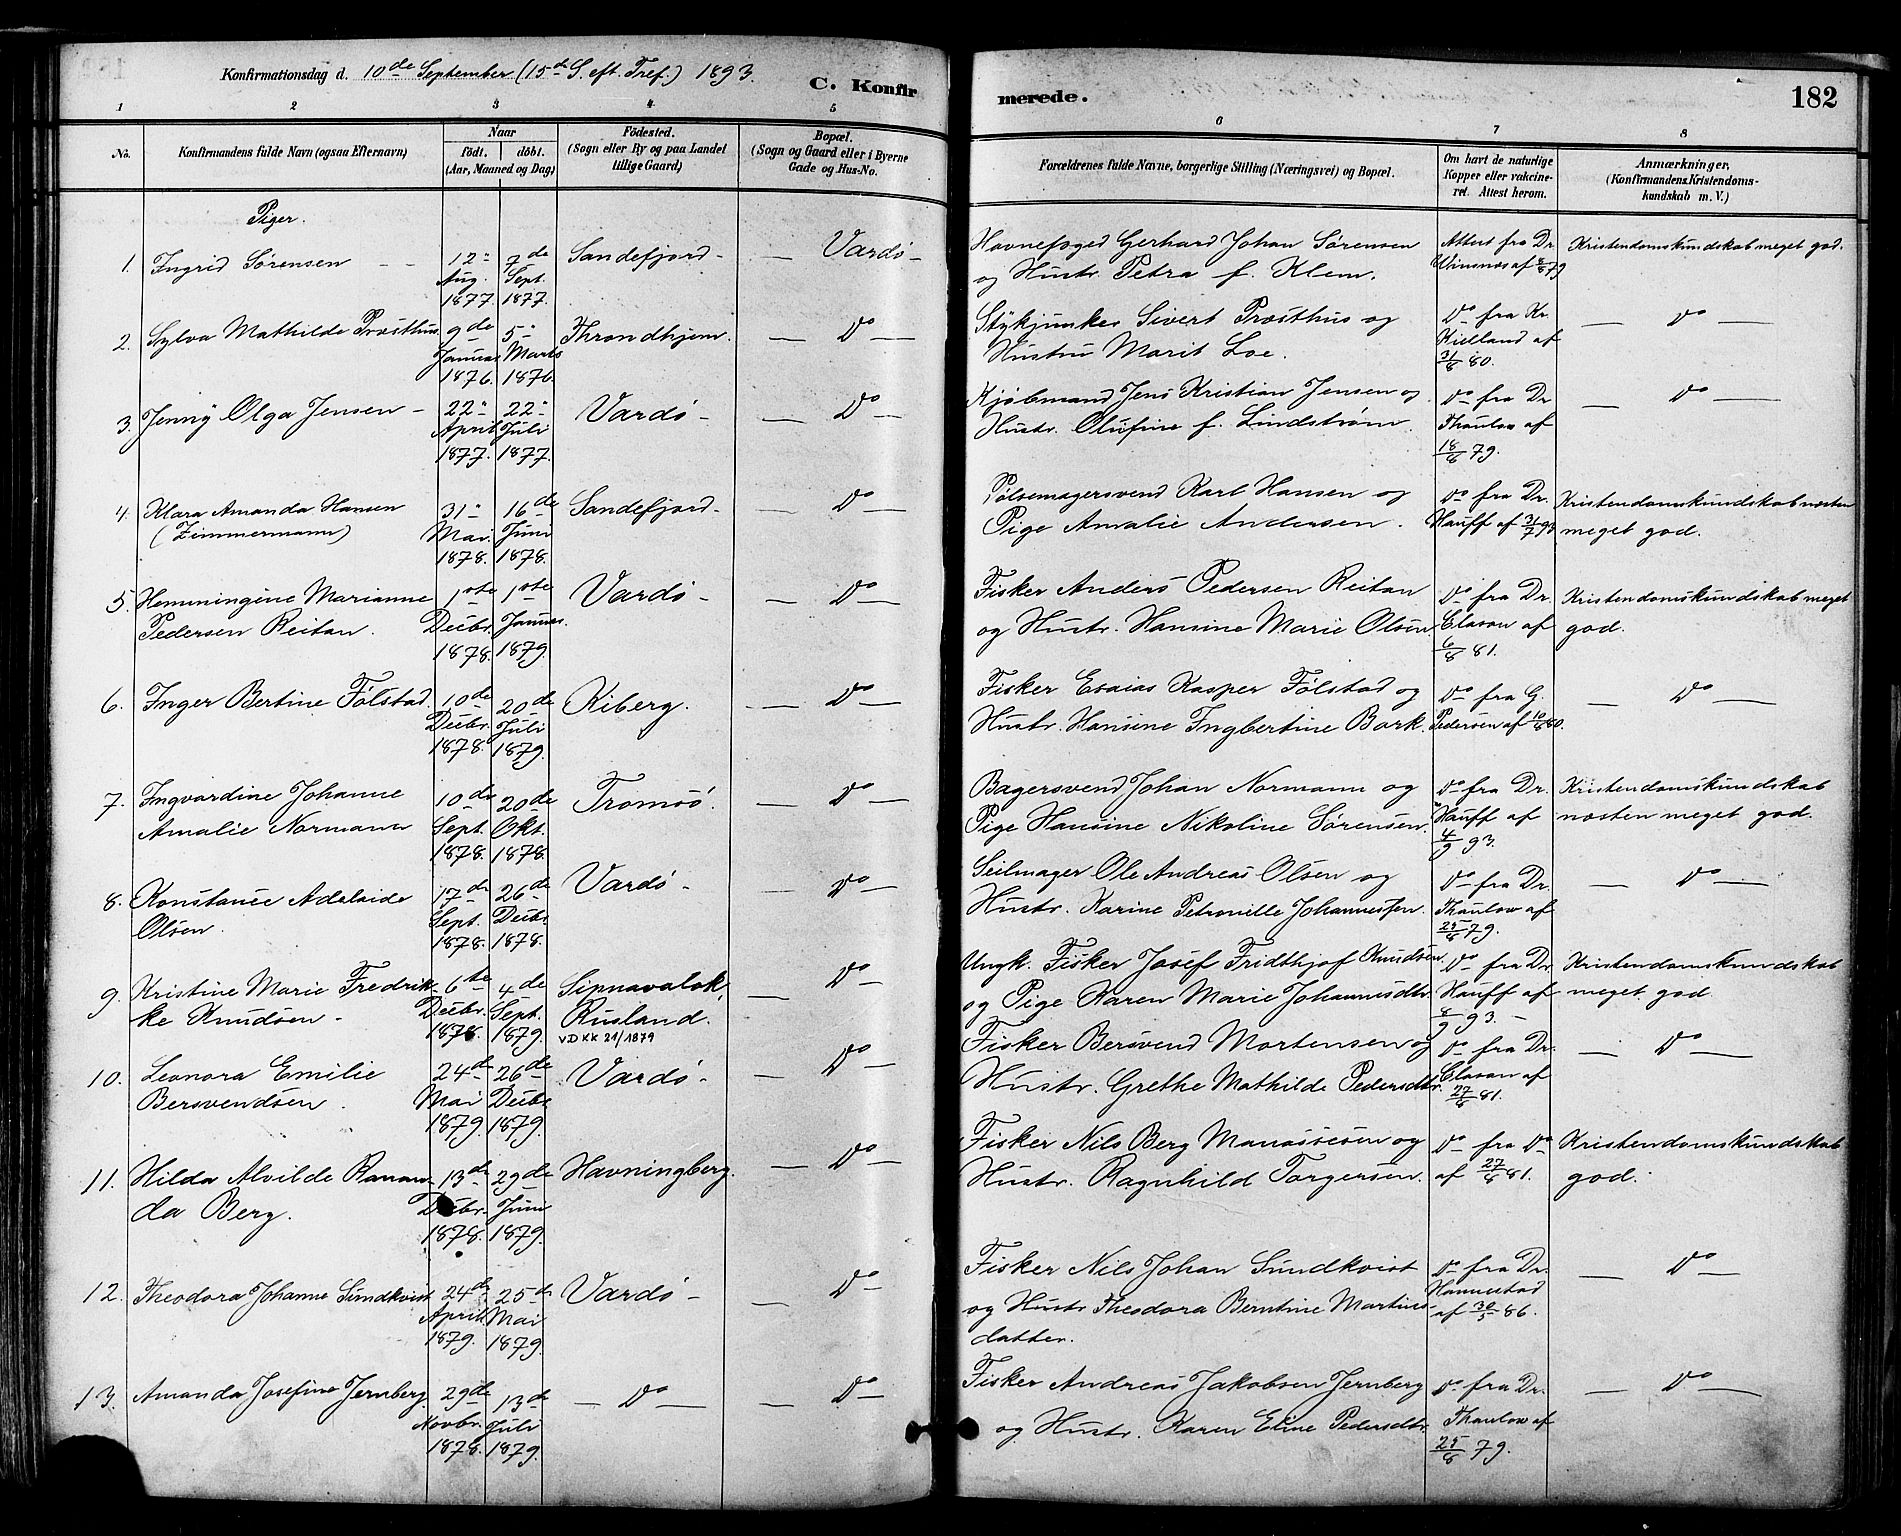 Konfirmationsdag d. 10de September (15de S. eft. Tref.) 1893.
C. Konfirmerede.
182
1 2 3 4 5 6 7 8
No.
Konfirmandens fulde Navn (ogsaa Efternavn)
Naar
födt. döbt.
(Aar, Maaned og Dag)
Födested.
(Sogn eller By og paa Landet
tillige Gaard)
Bopæl.
(Sogn og Gaard eller i Byerne
Gade og Hus-No.
Forældrenes fulde Navne, borgerlige Stilling (Næringsvei) og Bopæl.
Om havt de naturlige
Kopper eller vakcine-
ret. Attest herom.
Anmærkninger,
(Konfirmandens Kristendoms-
kundskab m. V.)
Piger.
1. Ingrid Sørensen — —
12te Aug. 1877.
7de Sept. 1877.
Sandefjord —
— Vardö —
Havnefoged Gerhard Johan Sørensen
og Hustr. Petra f. Klem.
Attest fra Dr.
Winsnæs af 8/8 79
Kristendomskundskab meget god.
2. Sylva Mathilde Præsthus
9de Januar 1876.
5te Marts 1876.
Throndhjem.
— Do —
Stykjunker Sivert Præsthus og
Hustru Marit Loe.
Do fra Kr.
Kielland af
31/8 80.
— Do —
3. Jenny Olga Jensen —
22de April 1877.
22de Juli 1877.
Vardö —
— Do —
Kjøbmand Jens Kristian Jensen og
Hustr. Olufine f. Lindstrøm.
Do fra Dr
Thaulow af
18/8 79.
— Do —
4. Klara Amanda Hansen
(Zimmermann)
31te Mai 1878.
16de Juni 1878.
Sandefjord —
— Do —
Pølsemagersvend Karl Hansen og
Pige Amalie Andersen.
Do fra Dr.
Hauff af 31/7 93
Kristendomskundskab næsten
meget god.
5. Hemmingine Marianne
Pedersen Reitan.
1ste Decbr. 1878.
1ste Januar 1879.
Vardö —
— Do —
Fisker Anders Pedersen Reitan
og Hustr. Hansine Marie Olsen
Do fra Dr.
Clason af
6/8 81.
Kristendomskundskab meget
god.
6. Inger Bertine Følstad.
10de Decbr. 1878.
20de Juli 1879.
Kiberg.
— Do —
Fisker Esaias Kasper Følstad og
Hustr. Hansine Ingbertine Bark.
Do fra G.
Pedersen af 10/8 80.
— Do —
7. Ingvardine Johanne
Amalie Normann
10de Sept. 1878.
20de Okt. 1878.
Tromsö.
— Do —
Bagersvend Johan Normann og
Pige Hansine Nikoline Sørensen.
Do fra Dr.
Hauff af
4/9 93.
Kristendomskundskab
næsten meget god.
8. Konstance Adelaide
Olsen.
17de Sept. 1878.
26de Decbr. 1878.
Vardö —
— Do —
Seilmager Ole Andreas Olsen og
Hustr. Karine Petronille Johannessen.
Do fra Dr.
Thaulow af
25/8 79.
— Do —
9. Kristine Marie Fredrik-
ke Knudsen —
6te Decbr. 1878.
4de Sept. 1879.
Sipnavalok,
Rusland.
VD KK 21/1879
— Do —
Ungk. Fisker Josef Fridthjof Knudsen
og Pige Karen Marie Johannesdtr.
Do fra Dr.
Hauff af
8/9 93. —
Kristendomskundskab
meget god.
10. Leonora Emilie
Bersvendsen.
24de Mai 1879.
26de Decbr. 1879.
Vardö —
— Do —
Fisker Bersvend Mortensen og
Hustr. Grethe Mathilde Pedersdtr.
Do fra Dr.
Clason af
27/8 81.
— Do —
11. Hilda Alvilde Ranan-
da Berg.
13de Decbr. 1878.
29de Juni 1879.
Havningberg.
— Do —
Fisker Nils Berg Manassesen og
Hustr. Ragnhild Torgersen.
Do fra Do
af 27/8 81.
Kristendomskundskab
god.
12. Theodora Johanne Sundkvist
24de April 1879.
25de Mai 1879.
Vardö —
— Do —
Fisker Nils Johan Sundkvist
og Hustr Theodora Berntine Martines-
datter.
Do fra Dr.
Hannestad
af 30/5 86.
— Do —
13. Amanda Josefine Jernberg.
29de Novbr. 1878.
13de Juli 1879.
— Do —
— Do —
Fisker Andreas Jakobsen Jernberg
og Hustr. Karen Eline Pedersdtr.
Do fra Dr.
Thaulow af
25/8 79.
— Do —